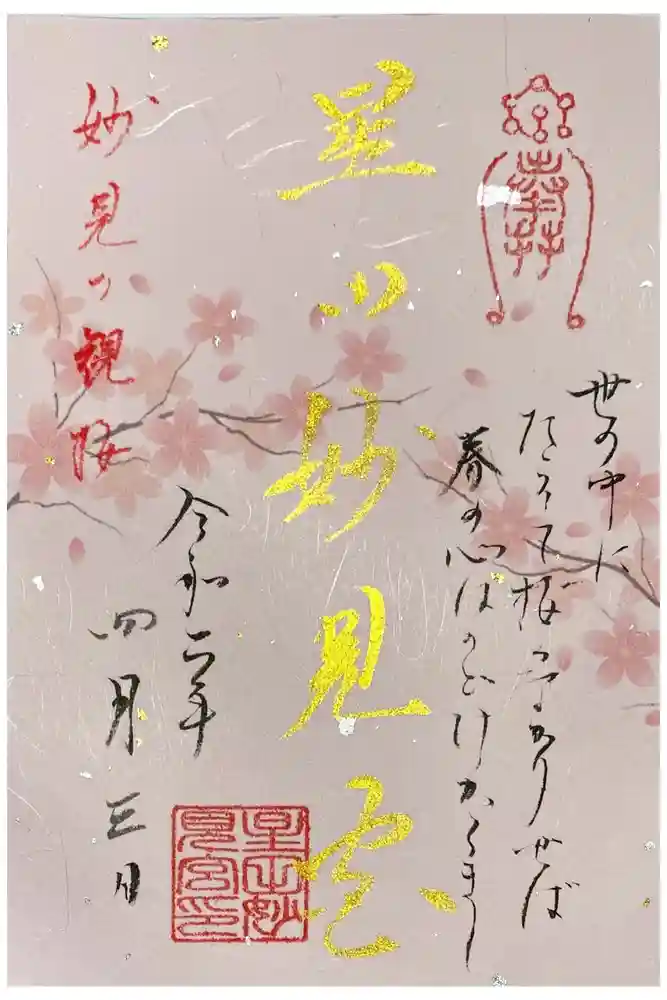 世の中に
たえて桜のなかりせば
春の心はのどけからまし
星田妙見宮
令和二年
四月三日
妙見の観桜